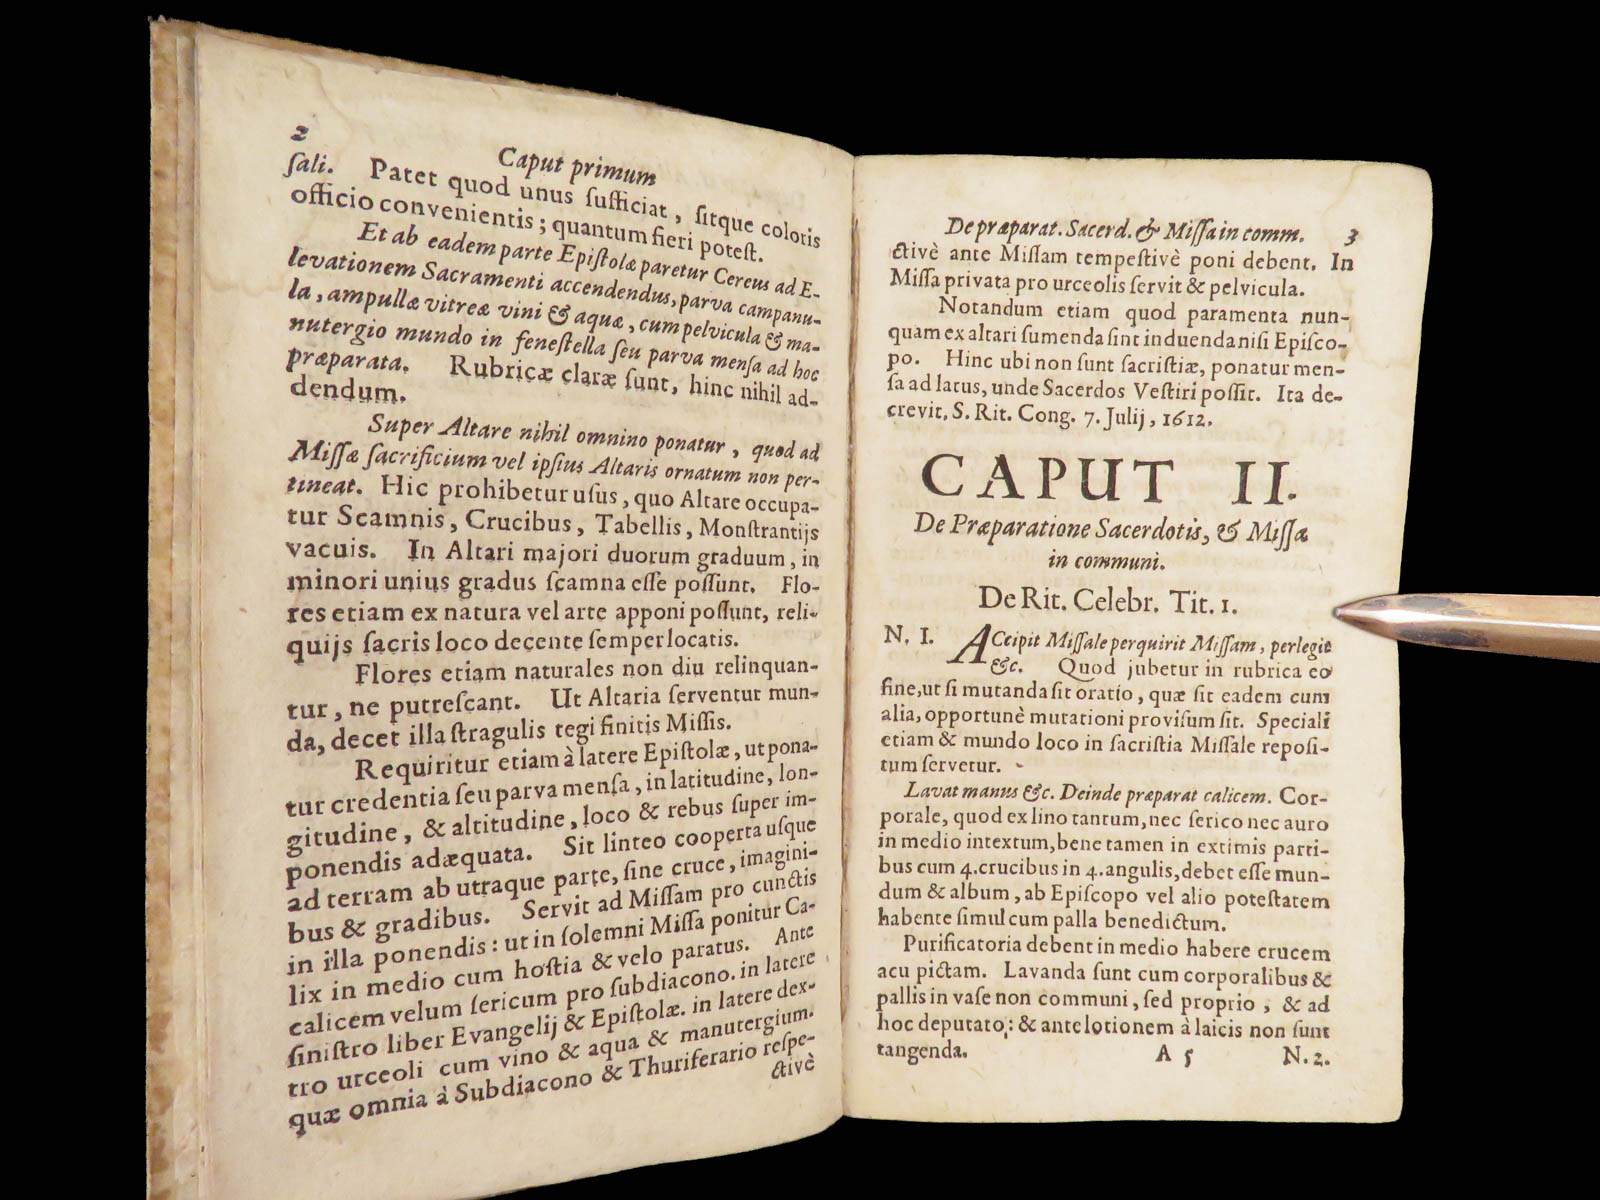 2
Caput primum
ſali. Patet quod unus ſufficiat, ſitque coloris
officio convenientis; quantum fieri poteſt.
Et ab eadem parte Epiſtolæ paretur Cereus ad E-
levationem Sacramenti accendendus, parva campanu-
la, ampullæ vitreæ vini & aquæ, cum pelvicula & ma-
nutergio mundo in feneſtella ſeu parva menſa ad hoc
præparata. Rubricæ claræ ſunt, hinc nihil ad-
dendum.
Super Altare nihil omnino ponatur, quod ad
Miſſæ ſacrificium vel ipſius Altaris ornatum non per-
tineat. Hic prohibetur uſus, quo Altare occupa-
tur Scamnis, Crucibus, Tabellis, Monſtrantijs
vacuis. In Altari majori duorum graduum, in
minori unius gradus ſcamna eſſe poſſunt. Flo-
res etiam ex natura vel arte apponi poſſunt, reli-
quijs ſacris loco decente ſemper locatis.
Flores etiam naturales non diu relinquan-
tur, ne putreſcant. Ut Altaria ſerventur mun-
da, decet illa ſtragulis tegi finitis Miſſis.
Requiritur etiam à latere Epiſtolæ, ut pona-
tur credentia ſeu parva menſa, in latitudine, lon-
gitudine, & altitudine, loco & rebus ſuper im-
ponendis adæquata. Sit linteo cooperta uſque
ad terram ab utraque parte, ſine cruce, imagini-
bus & gradibus. Servit ad Miſſam pro cunctis
in illa ponendis: ut in ſolemni Miſſa ponitur Ca-
lix in medio cum hoſtia & velo paratus. Ante
calicem velum ſericum pro ſubdiacono. in latere
ſiniſtro liber Evangelij & Epiſtolæ. in latere dex-
tro urceoli cum vino & aqua & manutergium.
quæ omnia à Subdiacono & Thuriferario reſpe-
ctivè
De præparat. Sacerd. & Miſſa in comm. 3
ctivè ante Miſſam tempeſtivè poni debent. In
Miſſa privata pro urceolis ſervit & pelvicula.
Notandum etiam quod paramenta nun-
quam ex altari ſumenda ſint induenda niſi Epiſco-
po. Hinc ubi non ſunt ſacriſtiæ, ponatur men-
ſa ad latus, unde Sacerdos Veſtiri poſſit. Ita de-
crevit. S. Rit. Cong. 7. Julij, 1612.
CAPUT II.
De Præparatione Sacerdotis, & Miſſæ
in communi.
De Rit. Celebr. Tit. 1.
N. I. ACcipit Miſſale perquirit Miſſam, perlegit
&c. Quod jubetur in rubrica eo
fine, ut ſi mutanda ſit oratio, quæ ſit eadem cum
alia, opportunè mutationi proviſum ſit. Speciali
etiam & mundo loco in ſacriſtia Miſſale repoſi-
tum ſervetur.
Lavat manus &c. Deinde præparat calicem. Cor-
porale, quod ex lino tantum, nec ſerico nec auro
in medio intextum, bene tamen in extimis parti-
bus cum 4. crucibus in 4. angulis, debet eſſe mun-
dum & album, ab Epiſcopo vel alio poteſtatem
habente ſimul cum palla benedictum.
Purificatoria debent in medio habere crucem
acu pictam. Lavanda ſunt cum corporalibus &
pallis in vaſe non communi, ſed proprio, & ad
hoc deputato: & ante lotionem à laicis non ſunt
tangenda. A 5 N. 2.